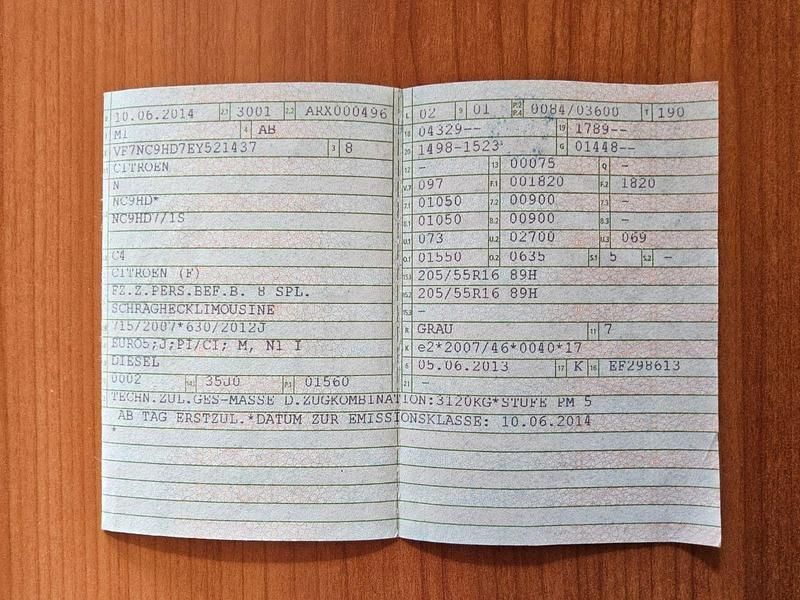 10.06.2014 2.1 3001 2.2 ARX000496
M1 4 AB
VF7NC9HD7EY521437 3 8
CITROEN
N
NC9HD*
NC9HD7/1S
C4
CITROEN (F)
FZ.Z.PERS.BEF.B. 8 SPL.
SCHRAGHECKLIMOUSINE
715/2007*630/2012J
EURO5;J;PI/CI; M, N1 I
DIESEL
0002 3500 P.1 01560
L 02 9 01 P.2 P.4 0084/03600 T 190
18 04329-- 19 1789--
20 1498-1523 G 01448--
12 - 13 00075 Q -
V.7 097 F.1 001820 F.2 1820
7.1 01050 7.2 00900 7.3 -
8.1 01050 8.2 00900 8.3 -
U.1 073 U.2 02700 U.3 069
O.1 01550 O.2 0635 S.1 5 S.2 -
15.1 205/55R16 89H
15.2 205/55R16 89H
15.3 -
R GRAU 11 7
K e2*2007/46*0040*17
6 05.06.2013 17 K 16 EF298613
21 -
TECHN.ZUL.GES-MASSE D.ZUGKOMBINATION:3120KG*STUFE PM 5
AB TAG ERSTZUL.*DATUM ZUR EMISSIONSKLASSE: 10.06.2014
*